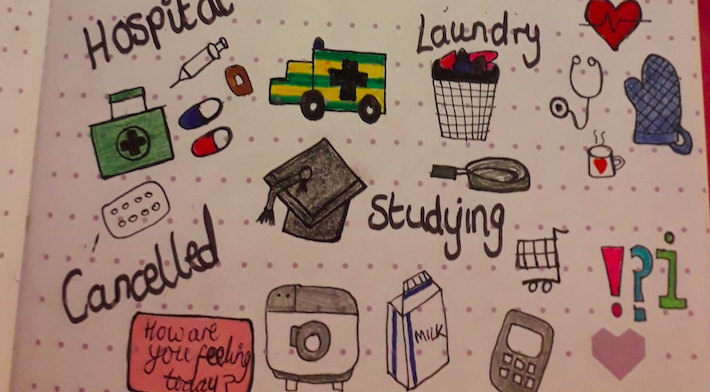 Hospital
Laundry
Studying
Cancelled
! ? i
How are
you feeling
today?
MILK